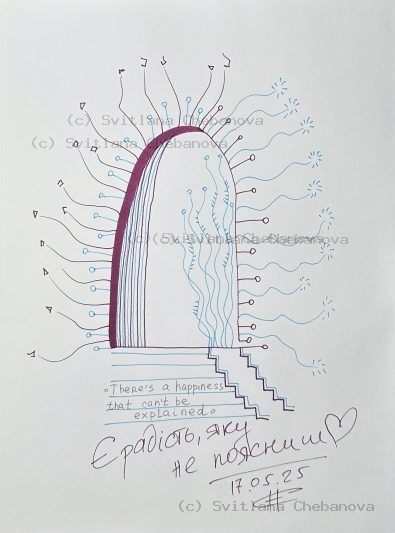 (c) Svitlana Chebanova
(c) Svitlana Chebanova
(c) Svitlana Chebanova
(c) Svitlana Chebanova
There's a happiness
that can't be
explained.
Є радість, яку
не поясниш
17.05.25
(c) Svitlana Chebanova